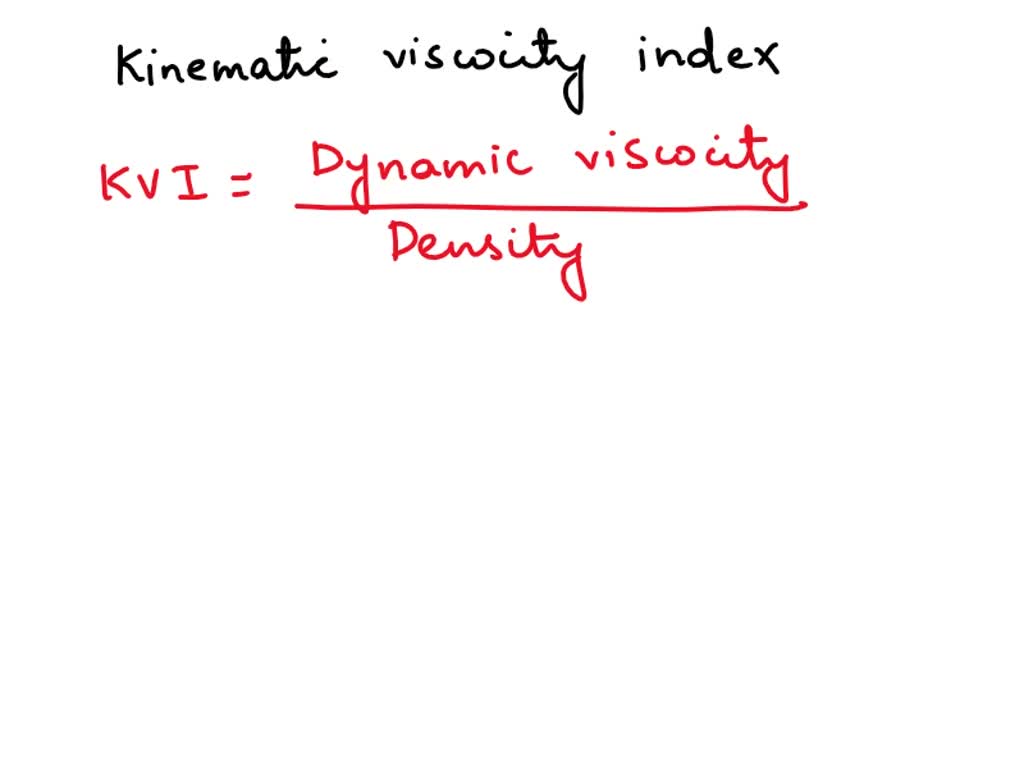 Kinematic viscocity index
KVI = Dynamic viscocity
Density